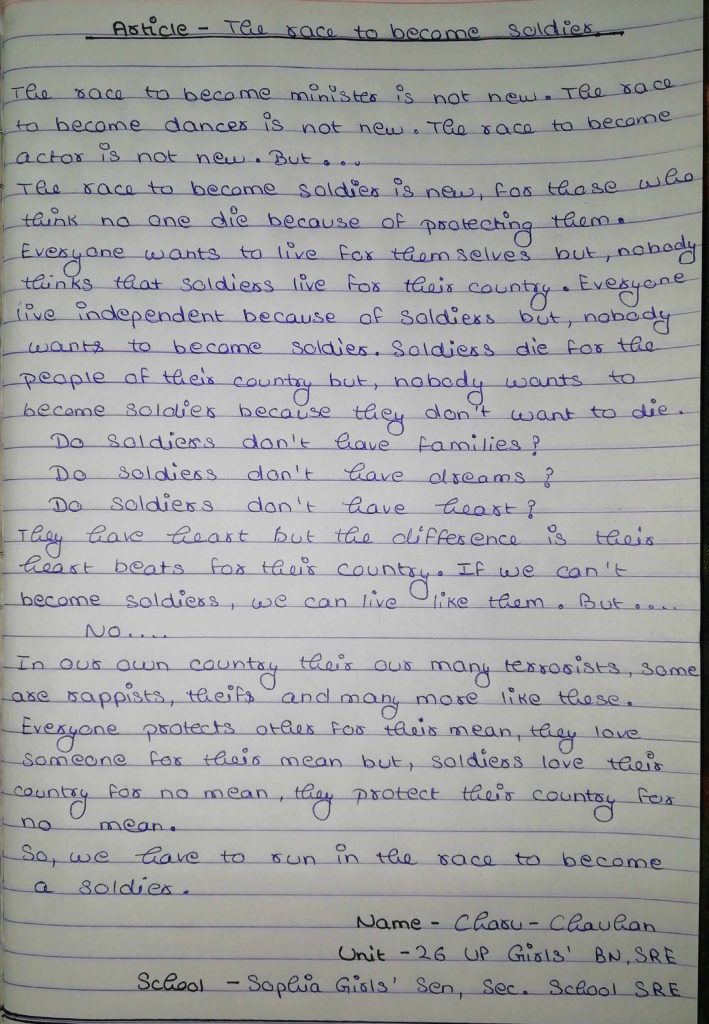 Article - The race to become soldier.
The race to become minister is not new. The race
to become dancer is not new. The race to become
actor is not new. But....
The race to become soldier is new, for those who
think no one die because of protecting them.
Everyone wants to live for themselves but, nobody
thinks that soldiers live for their country. Everyone
live independent because of soldiers but, nobody
wants to become soldier. Soldiers die for the
people of their country but, nobody wants to
become soldier because they don't want to die.
Do soldiers don't have families?
Do soldiers don't have dreams?
Do soldiers don't have heart?
They have heart but the difference is their
heart beats for their country. If we can't
become soldiers, we can live like them. But.....
No....
In our own country their our many terrorists, some
are rappists, theifs and many more like these.
Everyone protects other for their mean, they love
someone for their mean but, soldiers love their
country for no mean, they protect their country for
no mean.
So, we have to run in the race to become
a soldier.
Name - Charu - Chauhan
Unit - 26 UP Girls' BN, SRE
School - Sophia Girls' Sen, Sec. School SRE